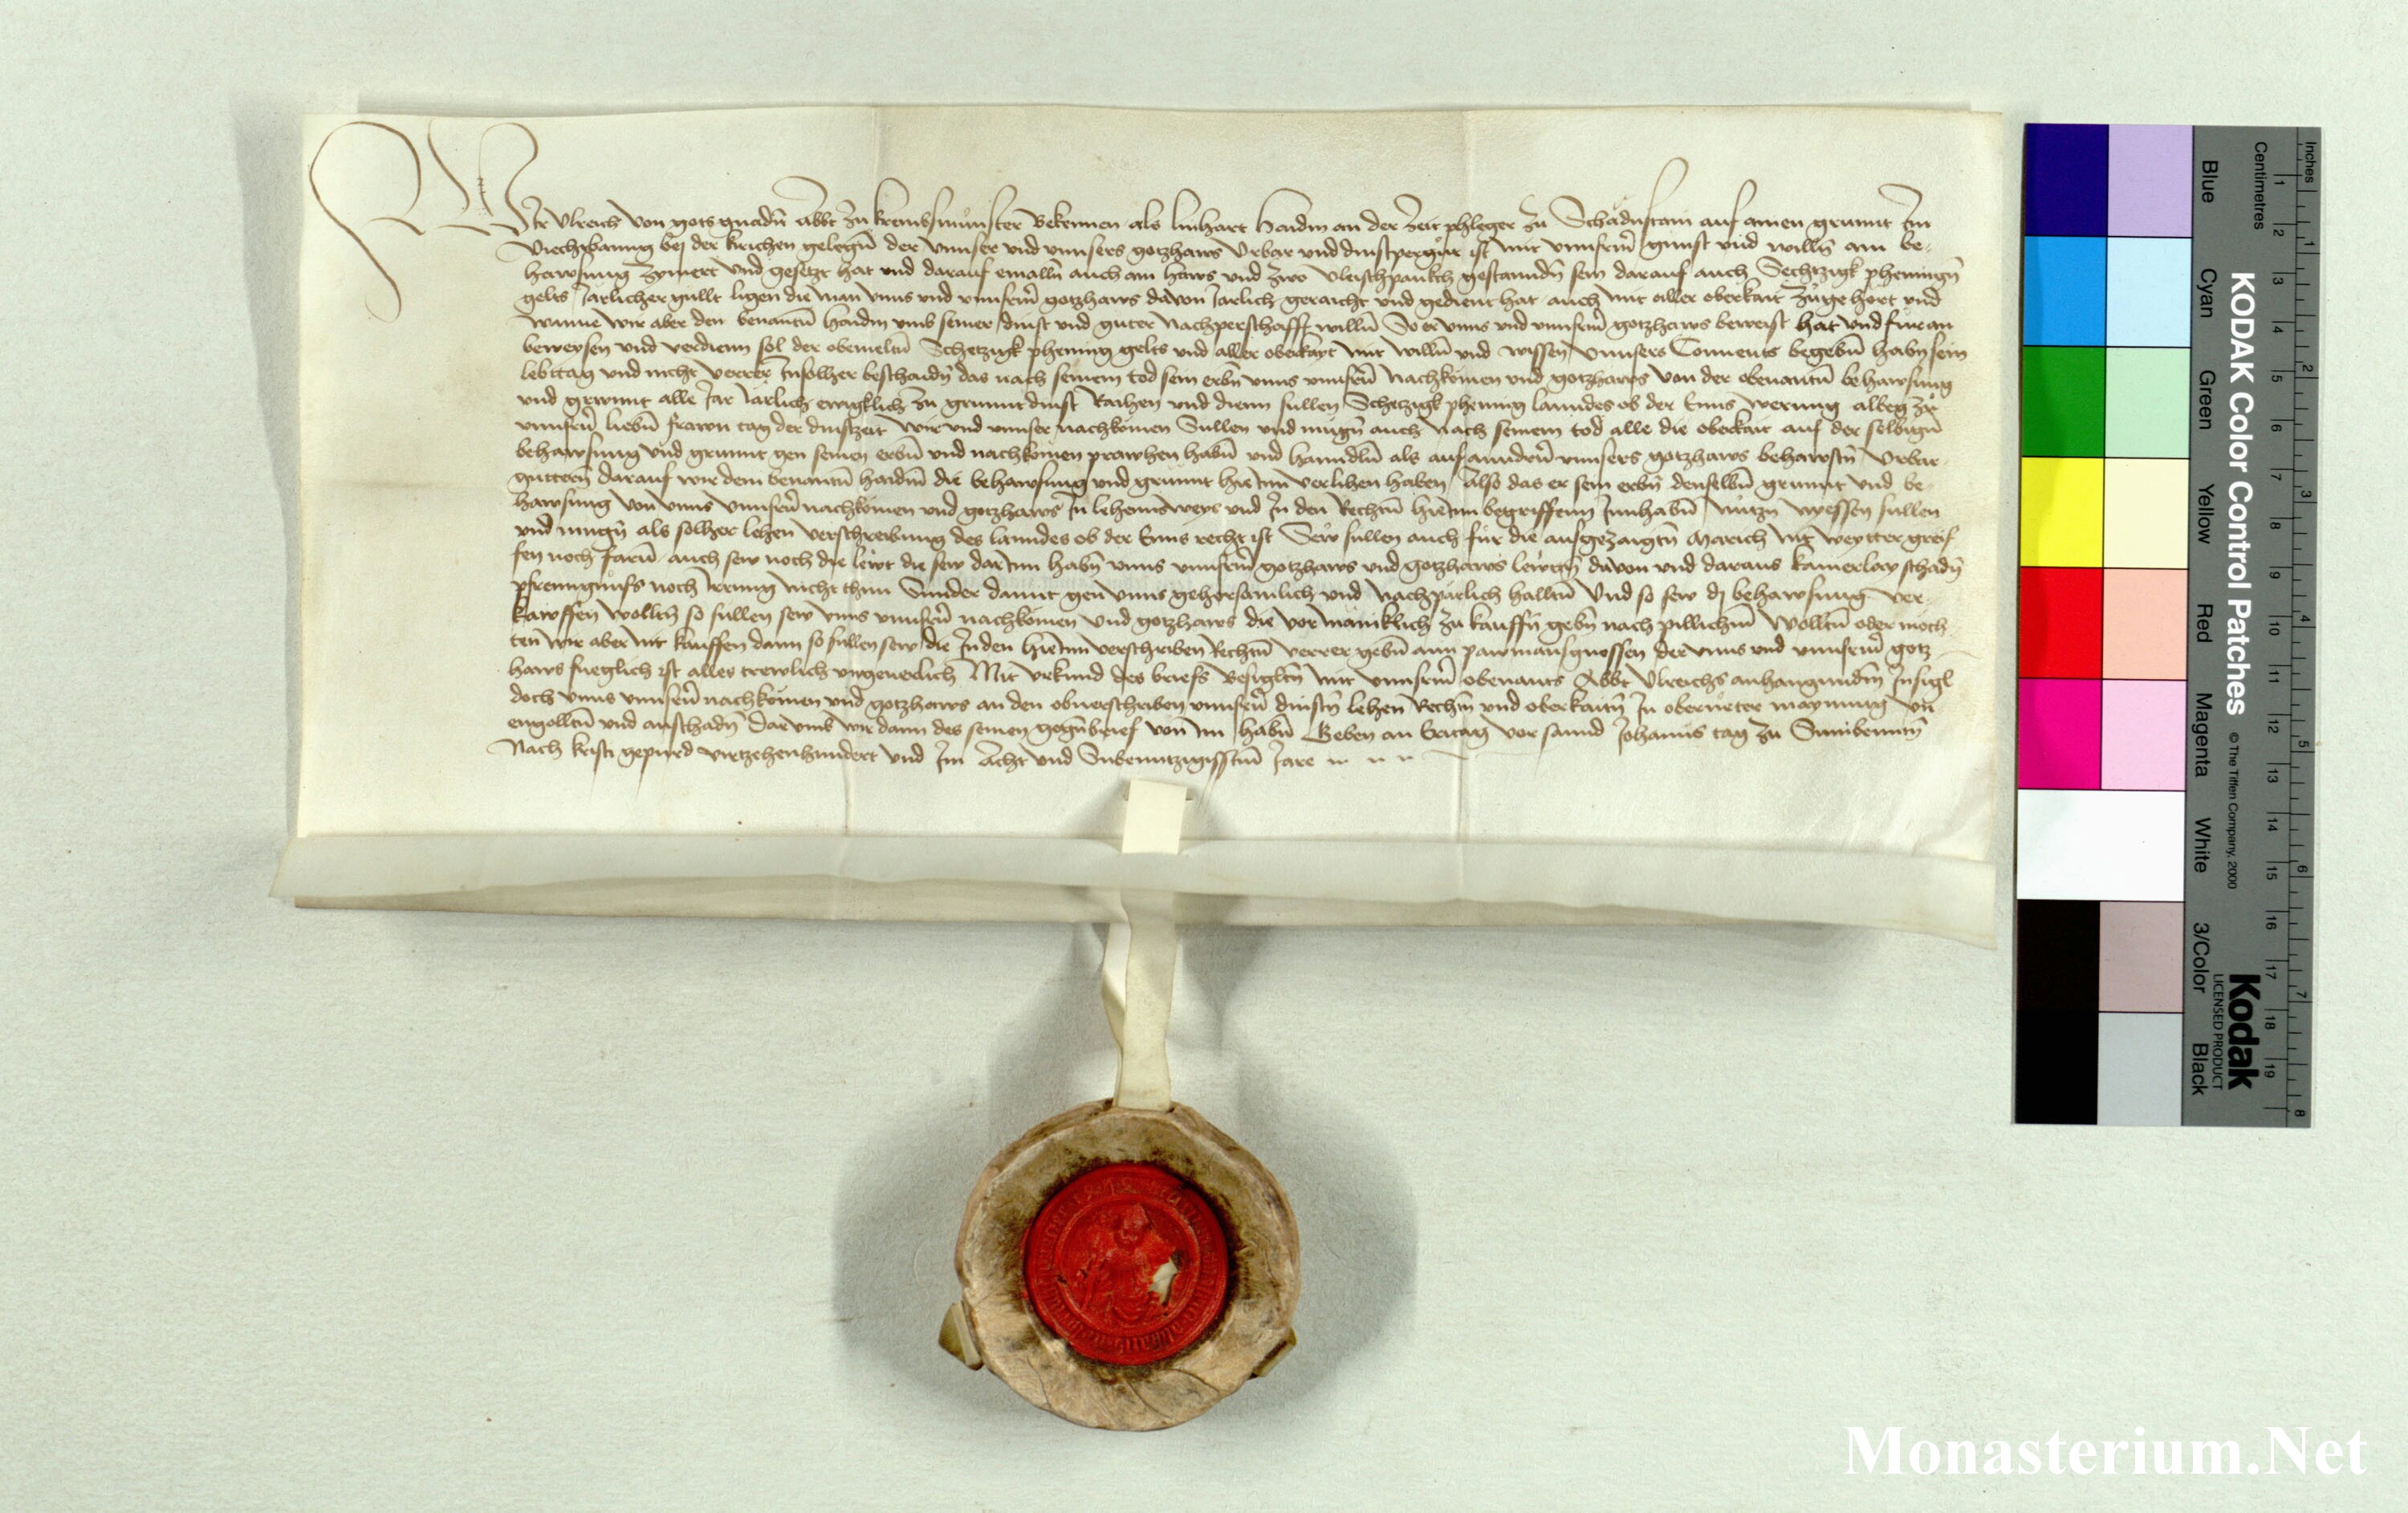 Wir Ulreich von gots gnadn̄ Abbt zu krembsmunster Bekennen als linhart Haidin an der Zeit phleger zu Schadnstain auf ainen grunnt Im
Viechtwanng bej der kirichen gelegn̄ der unnser und unnsers gotzhaws Urbar und dinstperg ist mit unnserm̄ gunst und willn̄ ain be-
hawsung Zymert und gesetzt hat und darauf emalln̄ auch ain haws und zwo vleischpankch gestanndn̄ sein darauf auch Sechtzigk phennign̄
gelts Jarlicher gullt ligen die man unns und unnserm̄ gotzhaws davon Jarlich geraicht und gedient hat auch mit aller oberkait zuge hört und
wanne wir aber den benantn̄ haidin umb seiner dinst und guter Nachperschafft willn̄ So er unns und unnserm̄ gotzhaws beweist hat und furan
beweysen und verdienn sol der obemeltn̄ Sechtzigk phening gelts und aller oberkayt mit willn̄ und wissen unnsers Convents begebn̄ habn̄ sein
lebttag und nicht verrer Insolher beschaidn̄ das nach seinem tod sein erbn̄ unns unnsern̄ Nachkömen und gotzhaws von der obenantn̄ behawsung
und grunnt alle Jar Jarlich ewigklich zu grunntdinst Raihen und dienn sullen Sechtzigk phening lanndes ob der Enns werung albeg zu
unnsrn̄ liebn̄ frawn tag der dinstzeit wir und unnser nachkömen Sullen und mugn̄ auch nach seinem tod alle die oberkait auf der selbign̄
behawsung und grunnt gen seinen erbn̄ und nachkömen prawhen habn̄ und hanndln̄ als auf anndrn̄ unnsers gotzhaws behawstn̄ Urbar-
guttern̄ darauf wir dem benantn̄ haidin̄ die behawsung und grunnt hieInn verlihen haben Also das er sein erbn̄ denselbn̄ grunnt und be-
hawsung von unns unnsern̄ nachkömen und gotzhaws In lehennsweys und In den Rechtn̄ hieInn begriffenn Innhabn̄ nutzn nyessen sullen
und mugn̄ als solher lehen verschreibung des lanndes ob der Enns recht ist Sew sullen auch fur die ausgezaigtn̄ March nit weytter greif
fen noch farn̄ auch sew noch die lewt die sew darInn habn̄ unns unnserm̄ gotzhaws und gotzhaws lewtn̄ davon und daraus kainerlay schadn̄
phrenngnuss noch Irrung nicht thun Sunder damit gen unns gehorsamlich und Nachpaurlich halltn̄ Und so sew dj behawsung ver-
kawffen wolltn̄ so sullen sew unns unnsrn̄ nachkömen und gotzhaws die vor mäniklich zu kauffn̄ gebn̄ nach pillichem̄ Wolltn̄ oder moch
ten wir aber nit kauffen dann so sullen sew die Inden hieInn verschriben Rechtn̄ verrer gebn̄ ainn pawmansgnossen der unns und unnserm̄ gotz-
haws fueglich ist alles trewlich ungeverlich Mit urkund des briefs Besigltn̄ mit unnserm̄ obenants Abbt Ulreichs anhangundm̄ Insigl
doch unns unnsern̄ nachkömen und gotzhaws an den obverschriben unnsern̄ dinstn̄ lehen Rechtn̄ und oberkaitn̄ In oberurter maynung un
engolltn̄ und anschadn̄ Dar umb wir dann des seinen gegn̄brief von im habn̄ Geben an Eritag vor sannd Johanns tag zu Sunibenntn̄
Nach kristi gepurd viertzehenhundert und Im Acht und Sibenntzigisstn̄ Jare
KODAK Color Control Patches
© The Tiffen Company, 2000
Kodak
LICENSED PRODUCT
Inches
Centimetres
1 2 3 4 5 6 7 8 9 10 11 12 13 14 15 16 17 18 19
1 2 3 4 5 6 7 8
Blue Cyan Green Yellow Red Magenta White 3/Color Black
Monasterium.Net